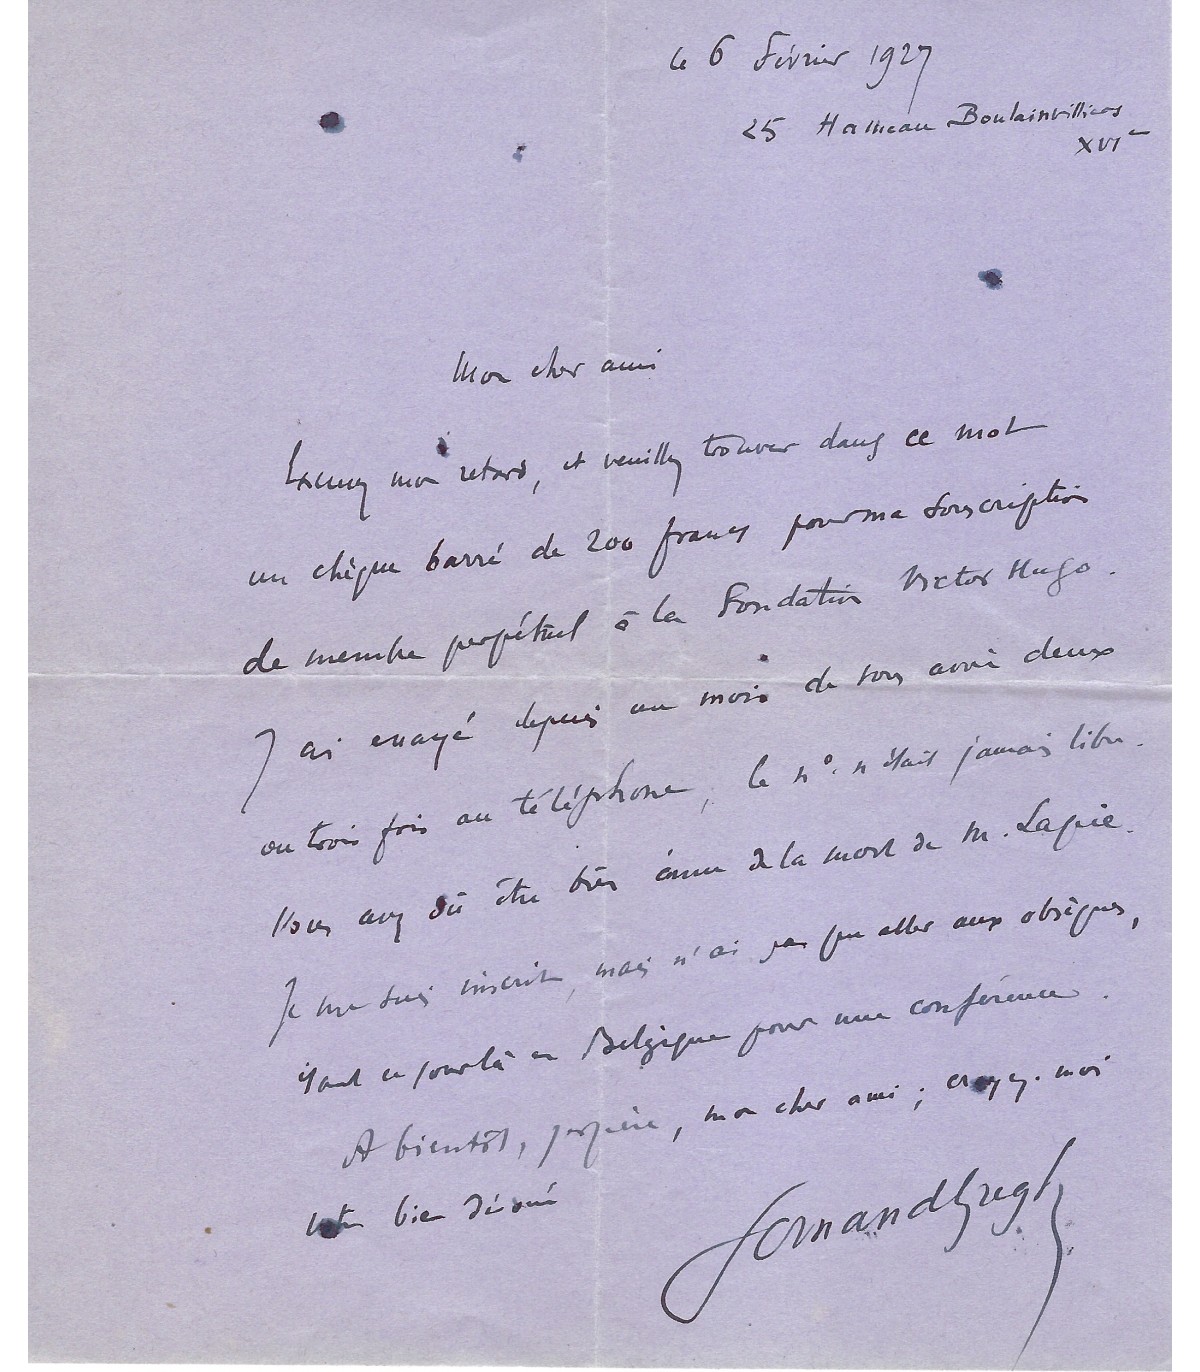 le 6 Février 1927
25 Hameau Boulainvilliers
XVIe
Mon cher ami
Excusez mon retard, et veuillez trouver dans ce mot
un chèque barré de 200 francs pour ma souscription
de membre perpétuel à la Fondation Victor Hugo.
J'ai essayé depuis un mois de vous avoir deux
ou trois fois au téléphone, le n° n'était jamais libre.
Vous avez dû être très ému de la mort de M. Lapie.
Je me suis inscrit, mais n'ai pas pu aller aux obsèques,
étant ce jour là en Belgique pour une conférence.
A bientôt, j'espère, mon cher ami; croyez-moi
votre bien dévoué
Fernand Gregh